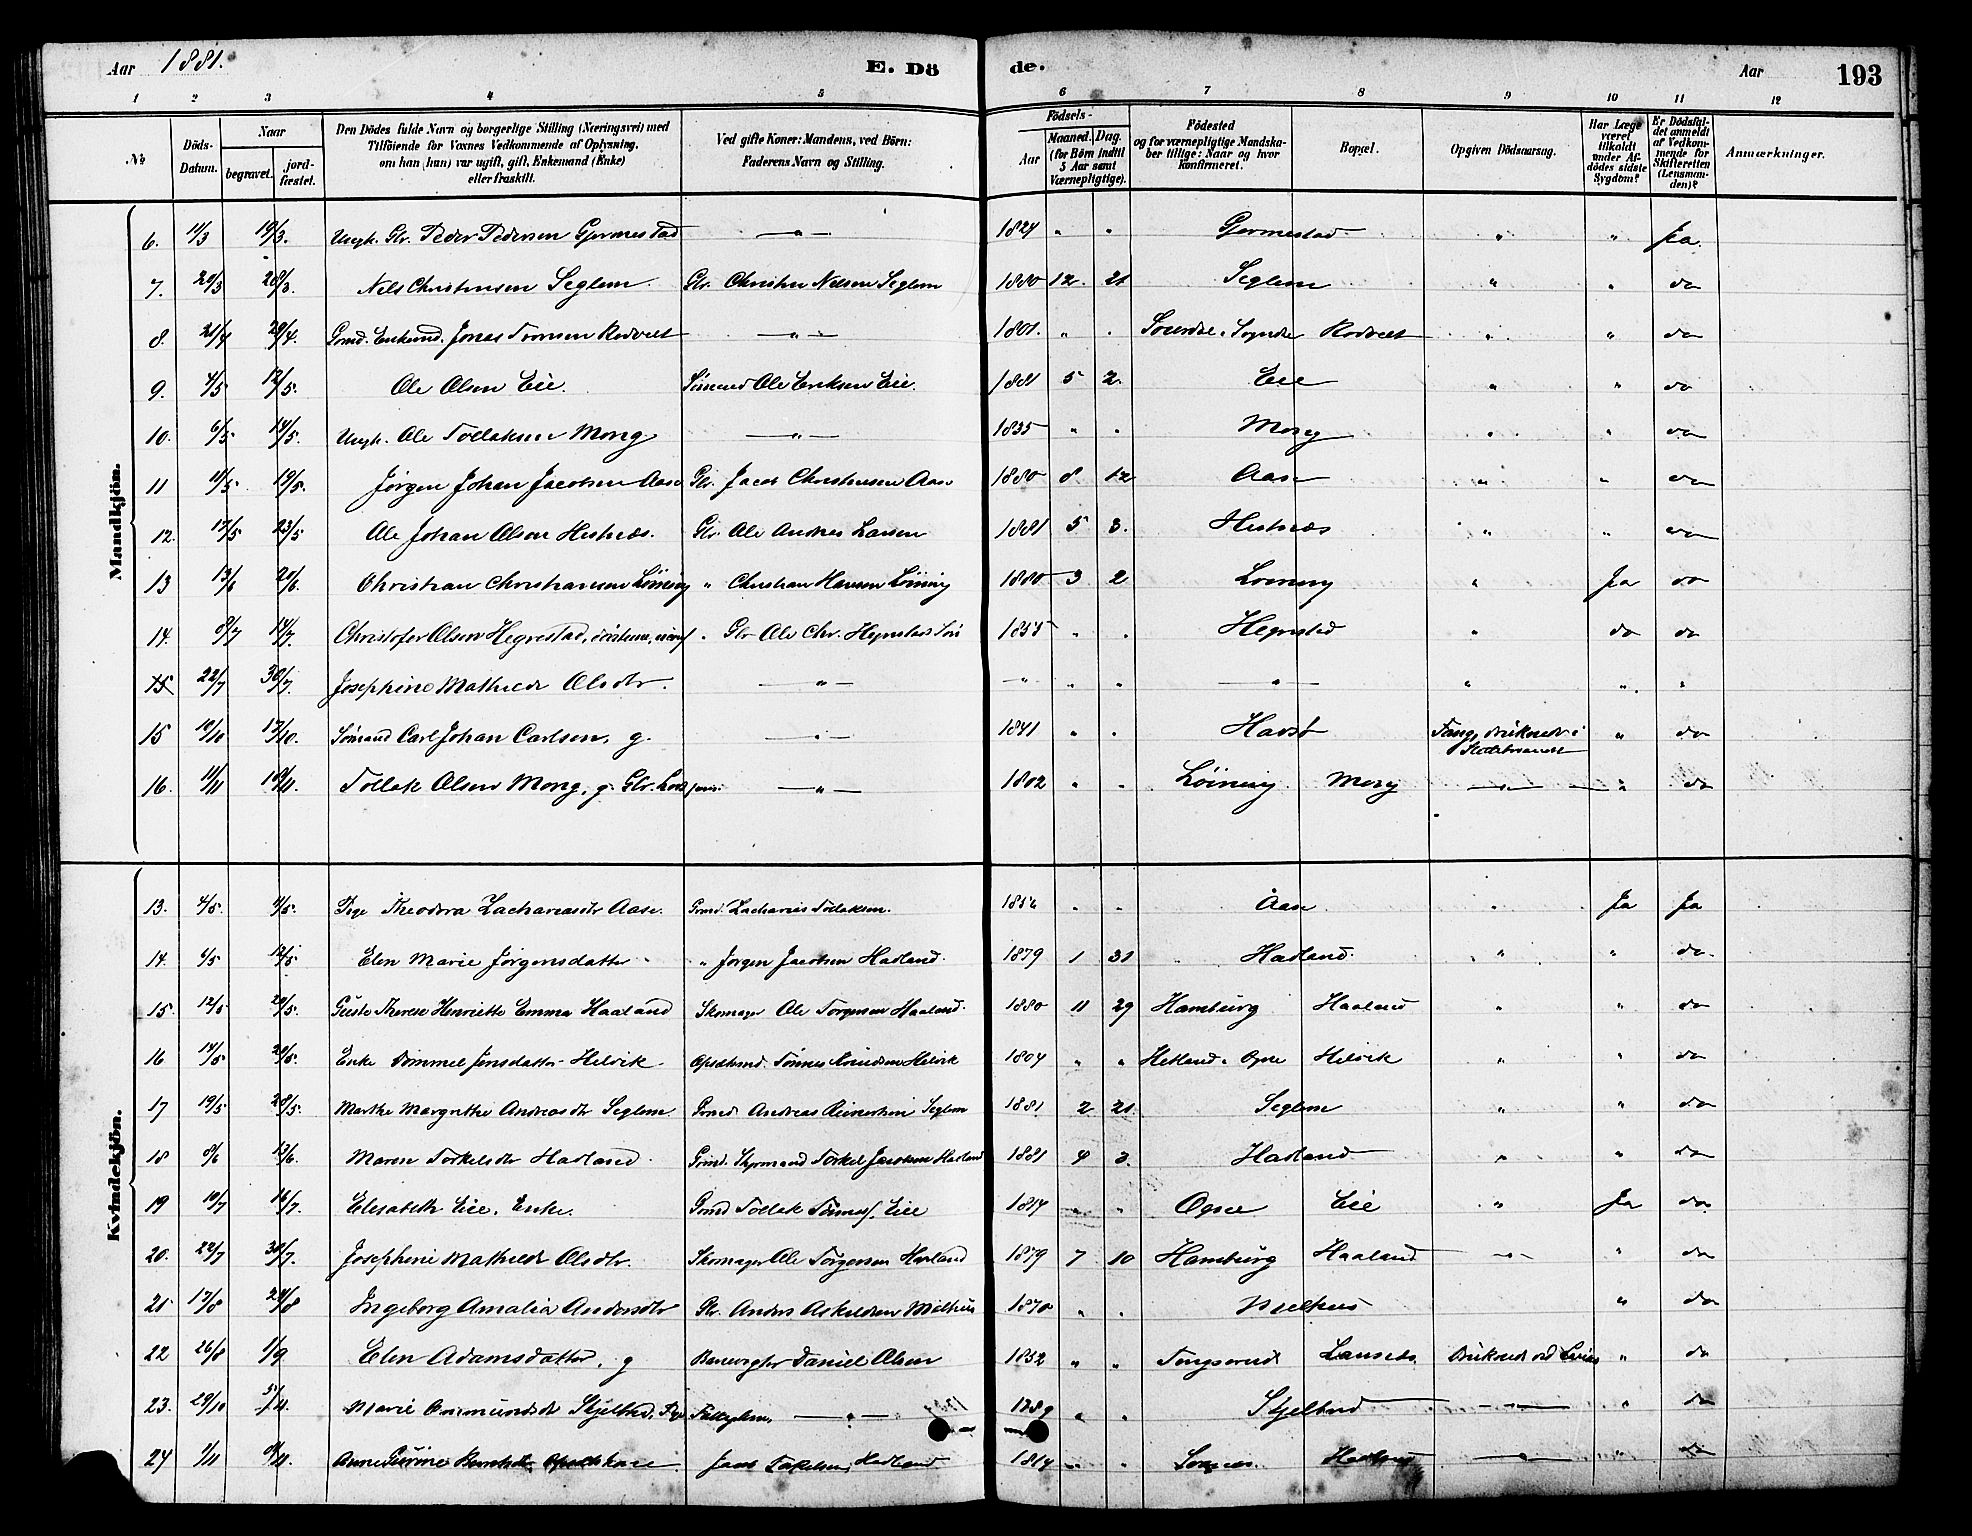 Aar 1881. E. Dö de. Aar 193
1 2 3 4 5 6 7 8 9 10 11 12
No Döds-Datum. Naar begravet. jordfæstet. Den Dödes fulde Navn og borgerlige Stilling (Næringsvei) med Tilföiende for Voxnes Vedkommende af Oplysning, om han (hun) var ugift, gift, Enkemand (Enke) eller fraskilt. Ved gifte Koner: Mandens, ved Börn: Faderens Navn og Stilling. Födsels- Aar Maaned. Dag. (for Börn indtil 5 Aar samt Værnepligtige). Födested og for værnepligtige Mandskaber tillige: Naar og hvor konfirmeret. Bopæl. Opgiven Dödsaarsag. Har Læge været tilkaldt under Afdödes sidste Sygdom? Er Dödsfaldet anmeldt af Vedkommende for Skifteretten (Lensmanden)? Anmærkninger.
Mandkjön.
6. 11/3 19/3. Ungk. Gbr. Peder Pedersen Gjermestad — " — 1824 " " Gjermestad " " Ja.
7. 20/3 28/3. Nils Christensen Seglem. Gbr. Christen Nilsen Seglem 1880 12. 21 Seglem " " do
8. 21/4 29/4. Grmd. Enkemd. Jonas Tonnesen Rodvelt — " — 1801. " . Sogndal Rodvelt " " do
9. 4/5 12/5. Ole Olsen Eie. Sömand Ole Eriksen Eie. 1881 5 2. Eie " " do
10. 6/5 14/5. Ungk. Ole Tollaksen Mong — " — 1835 " . Mong " " do
11 11/5 19/5. Jörgen Johan Jacobsen Aase Gbr. Jacob Christensen Aase 1880 8 12 Aase " " do
12. 17/5 23/5 Ole Johan Olsen Hestnæs. Gbr. Ole Andreas Larsen 1881 5 3. Hestnæs " " do
13 13/6 20/6. Christian Christiansen Löining " Christian Hansen Löining 1880 3 2 Löining " Ja do
14. 8/7 14/7. Christofer Olsen Hegrestad, Gbr Ole Chr. Hegrestad 1855 " . Hegrestad " do do
15 22/7 30/7. Josephine Mathilde Olsdtr. — " — — " — " . — " — " " "
15 10/10 17/10. Sömand Carl Johan Carlsen, g. — " — 1841 " . Havsö Fang, druknede i " do
16. 11/11 19/11. Tollak Olsen Mong, g. Gbr. — " — 1802 " . Löining Mong — " — " do
Kvindekjön.
13. 4/5. 11/5. Pige Theodora Zachariasdtr Aase. Grmd. Zacharias Tollaksen. 1856 " . Aase " Ja Ja
14. 4/5 12/5. Elen Marie Jörgensdatter " Jörgen Jacobsen Hadland. 1879 1 31 Hadland. " " do.
15. 12/5 20/5. Therese Henriette Emma Haaland Skomager Ole Torgersen Haaland. 1880 11 29 Hamburg Haaland " " do
16 14/5 20/5. Enke Jonsdatter Helvik. Tönnes Helvik 1804 " " Hetland. Ogne Helvik " " do
17 19/5 28/5. Marthe Margrethe Andreasdtr Seglem. Grmd. Andreas Reinertsen Seglem 1881 2 21. Seglem " " do
18 8/6 13/6. Maren Torkelsdtr Hadland. Grmd. Styrmand Torkel Jacobsen Hadland 1881 4 3. Hadland " " do
19 10/7 16/7. Elisabeth Eie. Enke. Grmd Tollak Tönness. Eie 1814 " " Ogne Eie " Ja do
20. 22/7 30/7. Josephine Mathilde Olsdtr. Skomager Ole Torgersen Haaland 1879 7 10 Hamburg Haaland — " — " do
21 17/8 24/8 Ingeborg Amalia Andersdtr Gbr. Anders Askildsen Mælhus 1870 " . Mælhus " do
22 26/8 1/9 Elen Adamsdatter, g Banevogter Daniel Olsen 1852 " " Lanseds. Druknede ved " do
23. 29/10 5/11. Marie Omundsdtr Skjelbred, — " — 1789 " . Skjelbred — " — " do
24 1/11 Anne Gurine Jacob Hadland 1814 " . — " — " do